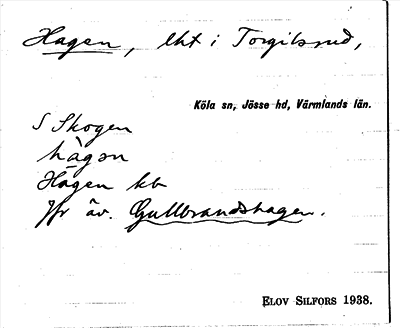 Hagen, lht i Torgilsrud,
Köla sn, Jösse hd, Värmlands län.
S Skogen
hàgen
Hagen kb
Jfr äv. Gullbrandshagen.
ELOV SILFORS 1938.